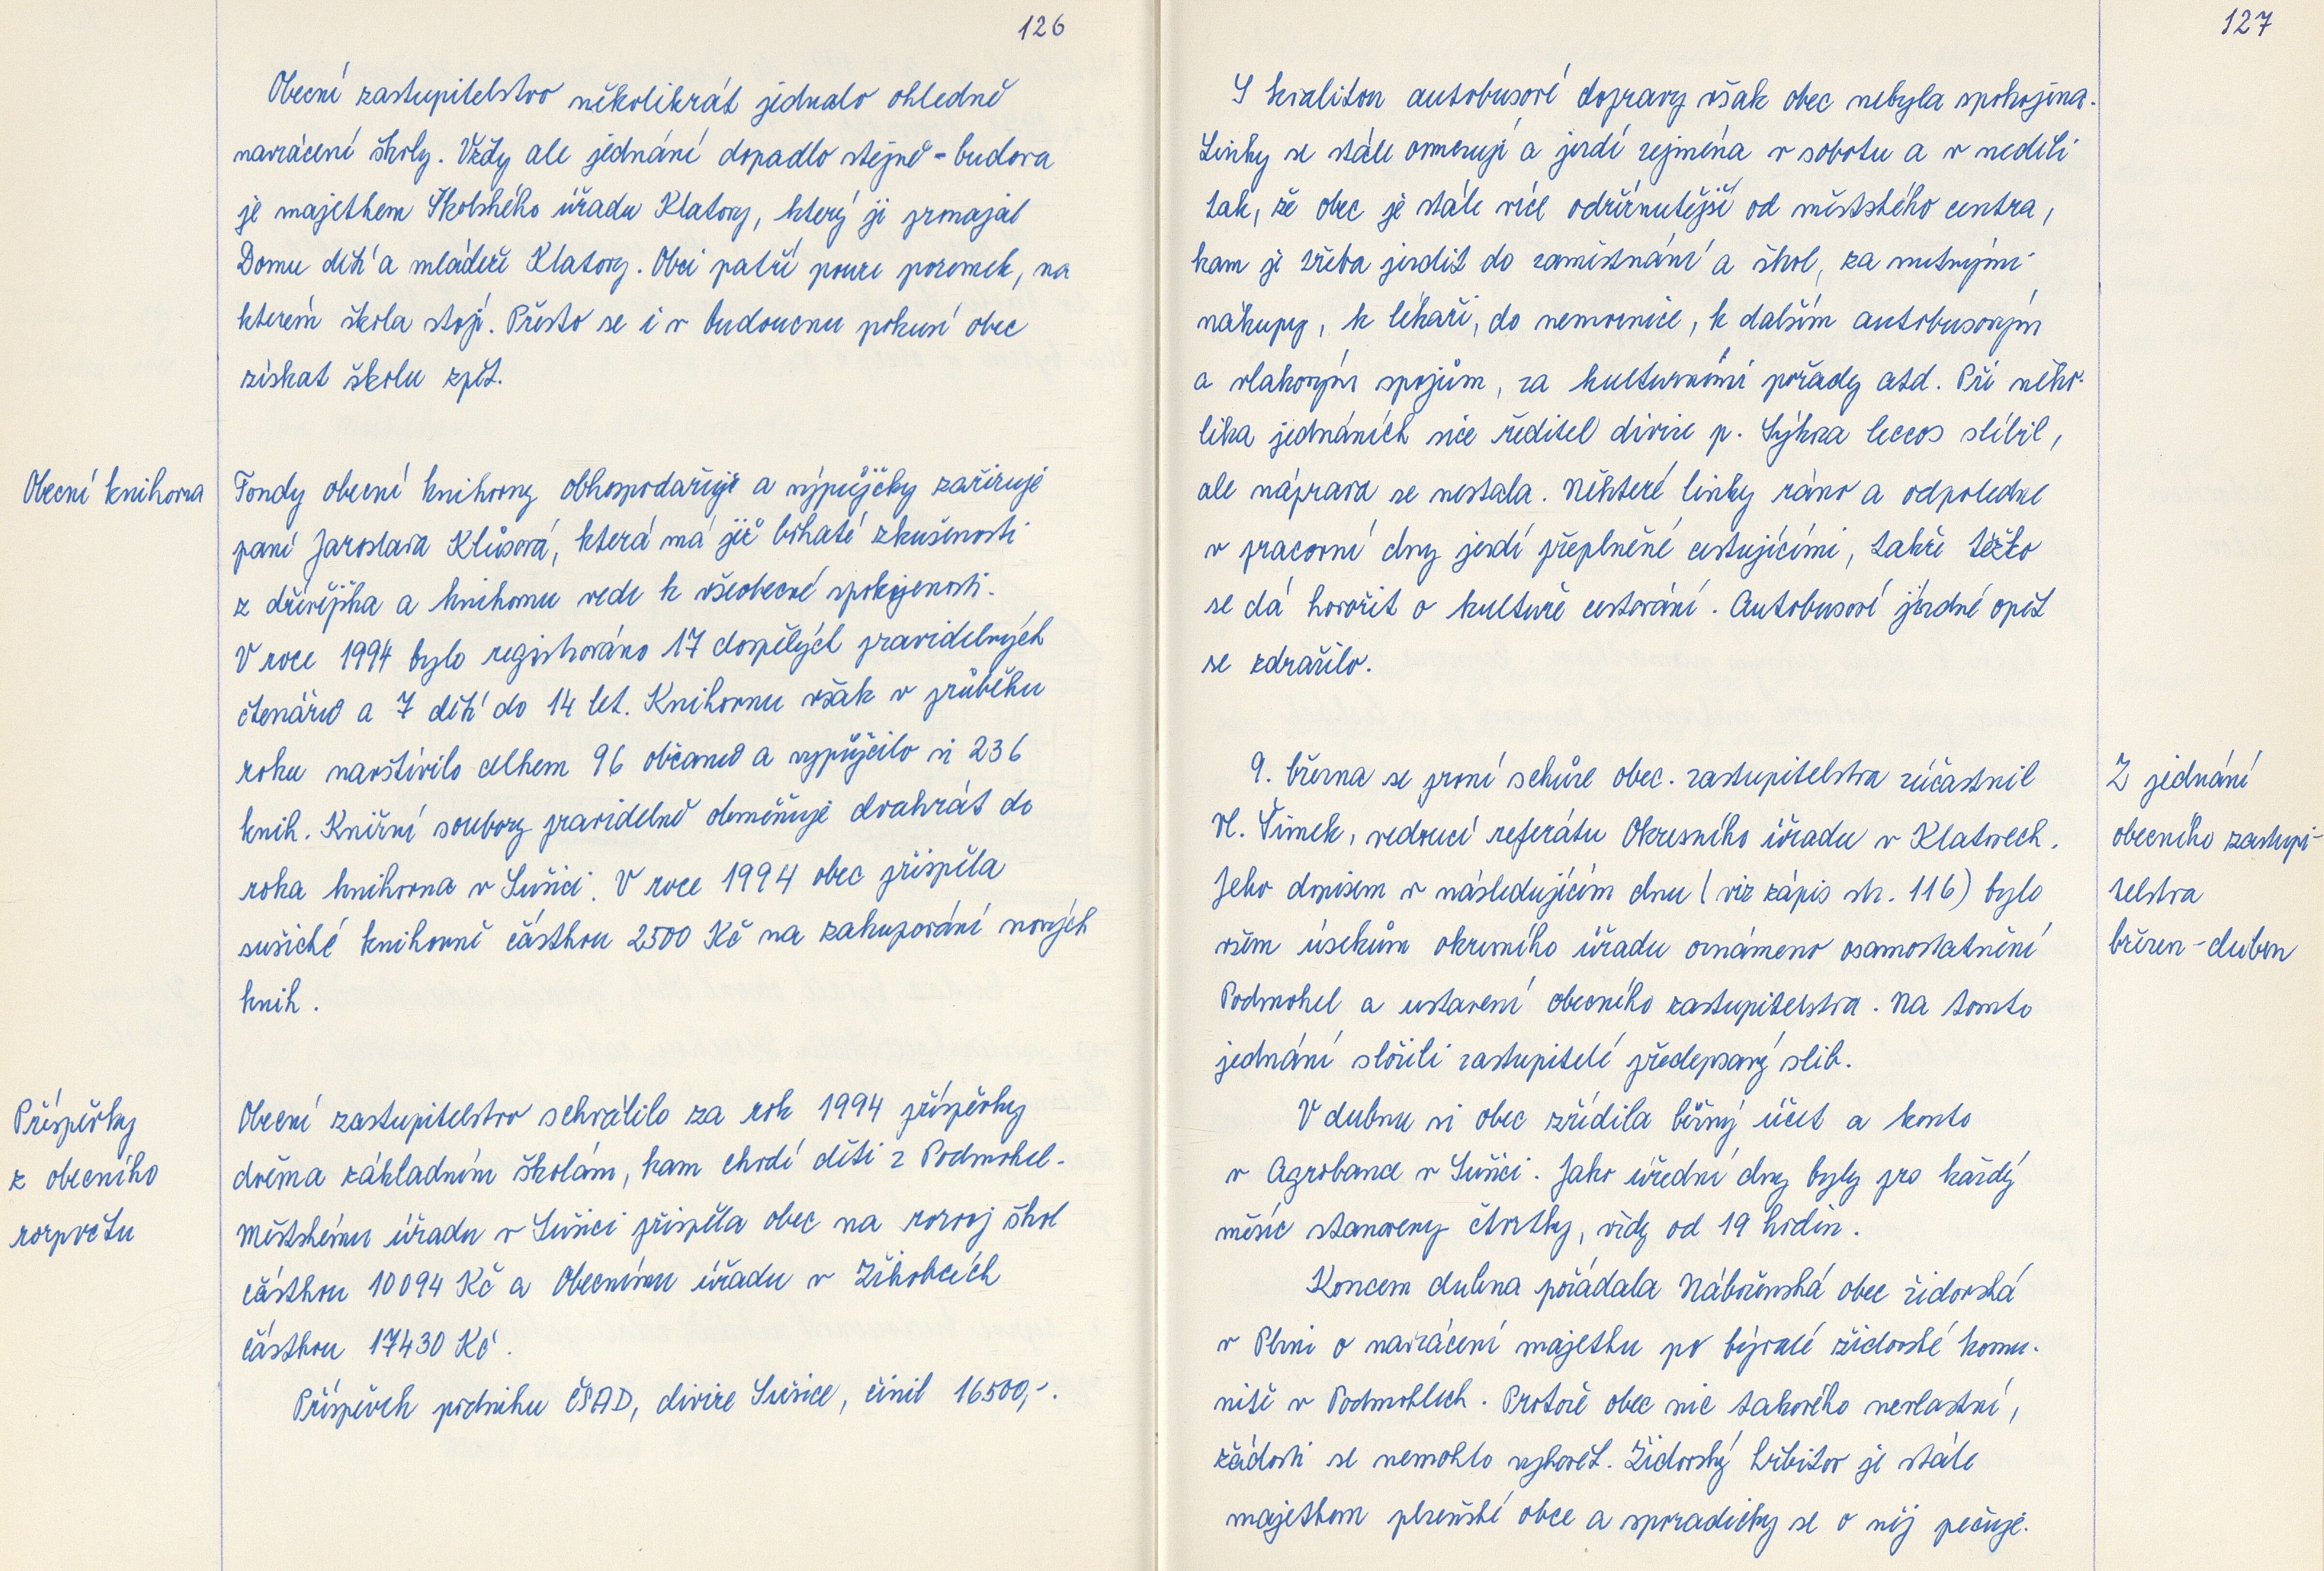 126
Obecní zastupitelstvo několikrát jednalo ohledně
navrácení školy. Vždy ale jednání dopadlo stejně - budova
je majetkem Školského úřadu Klatovy, který ji pronajal
Domu dětí a mládeže Klatovy. Obci patří pouze pozemek, na
kterém škola stojí. Přesto se i v budoucnu pokusí obec
získat školu zpět.
Obecní knihovna
Fondy obecní knihovny obhospodařuje a výpůjčky zařizuje
paní Jaroslava Klůsová, která má již bohaté zkušenosti
z dřívějška a knihovnu vede k všeobecné spokojenosti.
V roce 1994 bylo registrováno 17 dospělých pravidelných
čtenářů a 7 dětí do 14 let. Knihovnu však v průběhu
roku navštívilo celkem 96 občanů a vypůjčilo si 236
knih. Knižní soubory pravidelně obměňuje dvakrát do
roka knihovna v Sušici. V roce 1994 obec přispěla
sušické knihovně částkou 2500 Kč na zakupování nových
knih.
Příspěvky
z obecního
rozpočtu
Obecní zastupitelstvo schválilo za rok 1994 příspěvky
dvěma základním školám, kam chodí děti z Podmokel.
Městskému úřadu v Sušici přispěla obec na rozvoj škol
částkou 10094 Kč a Obecnímu úřadu v Žihobcích
částkou 17430 Kč.
Příspěvek podniku ČSAD, divize Sušice, činil 16500,-.
127
S kvalitou autobusové dopravy však obec nebyla spokojena.
Linky se stále omezují a jezdí zejména v sobotu a v neděli
tak, že obec je stále více odříznutější od městského centra,
kam je třeba jezdit do zaměstnání a škol, za nutnými
nákupy, k lékaři, do nemocnice, k dalším autobusovým
a vlakovým spojům, za kulturními pořady atd. Při něko-
lika jednáních sice ředitel divize p. Sýkora leccos slíbil,
ale náprava se nestala. Některé linky ráno a odpoledne
v pracovní dny jezdí přeplněné cestujícími, takže těžko
se dá hovořit o kultuře cestování. Autobusové jízdné opět
se zdražilo.
9. března se první schůze obec. zastupitelstva zúčastnil
Vl. Šimek, vedoucí referátu Okresního úřadu v Klatovech.
Jeho dopisem v následujícím dnu (viz zápis str. 116) bylo
všem úsekům okresního úřadu oznámeno osamostatnění
Podmokel a ustavení obecního zastupitelstva. Na tomto
jednání složili zastupitelé předepsaný slib.
V dubnu si obec zřídila běžný účet a konto
v Agrobance v Sušici. Jako úřední dny byly pro každý
měsíc stanoveny čtvrtky, vždy od 19 hodin.
Koncem dubna požádala Náboženská obec židovská
v Plzni o navrácení majetku po bývalé židovské komu-
nitě v Podmoklech. Protože obec nic takového nevlastní,
žádosti se nemohlo vyhovět. Židovský hřbitov je stále
majetkem plzeňské obce a sporadicky se o něj pečuje.
Z jednání
obecního zastupi-
telstva
březen - duben